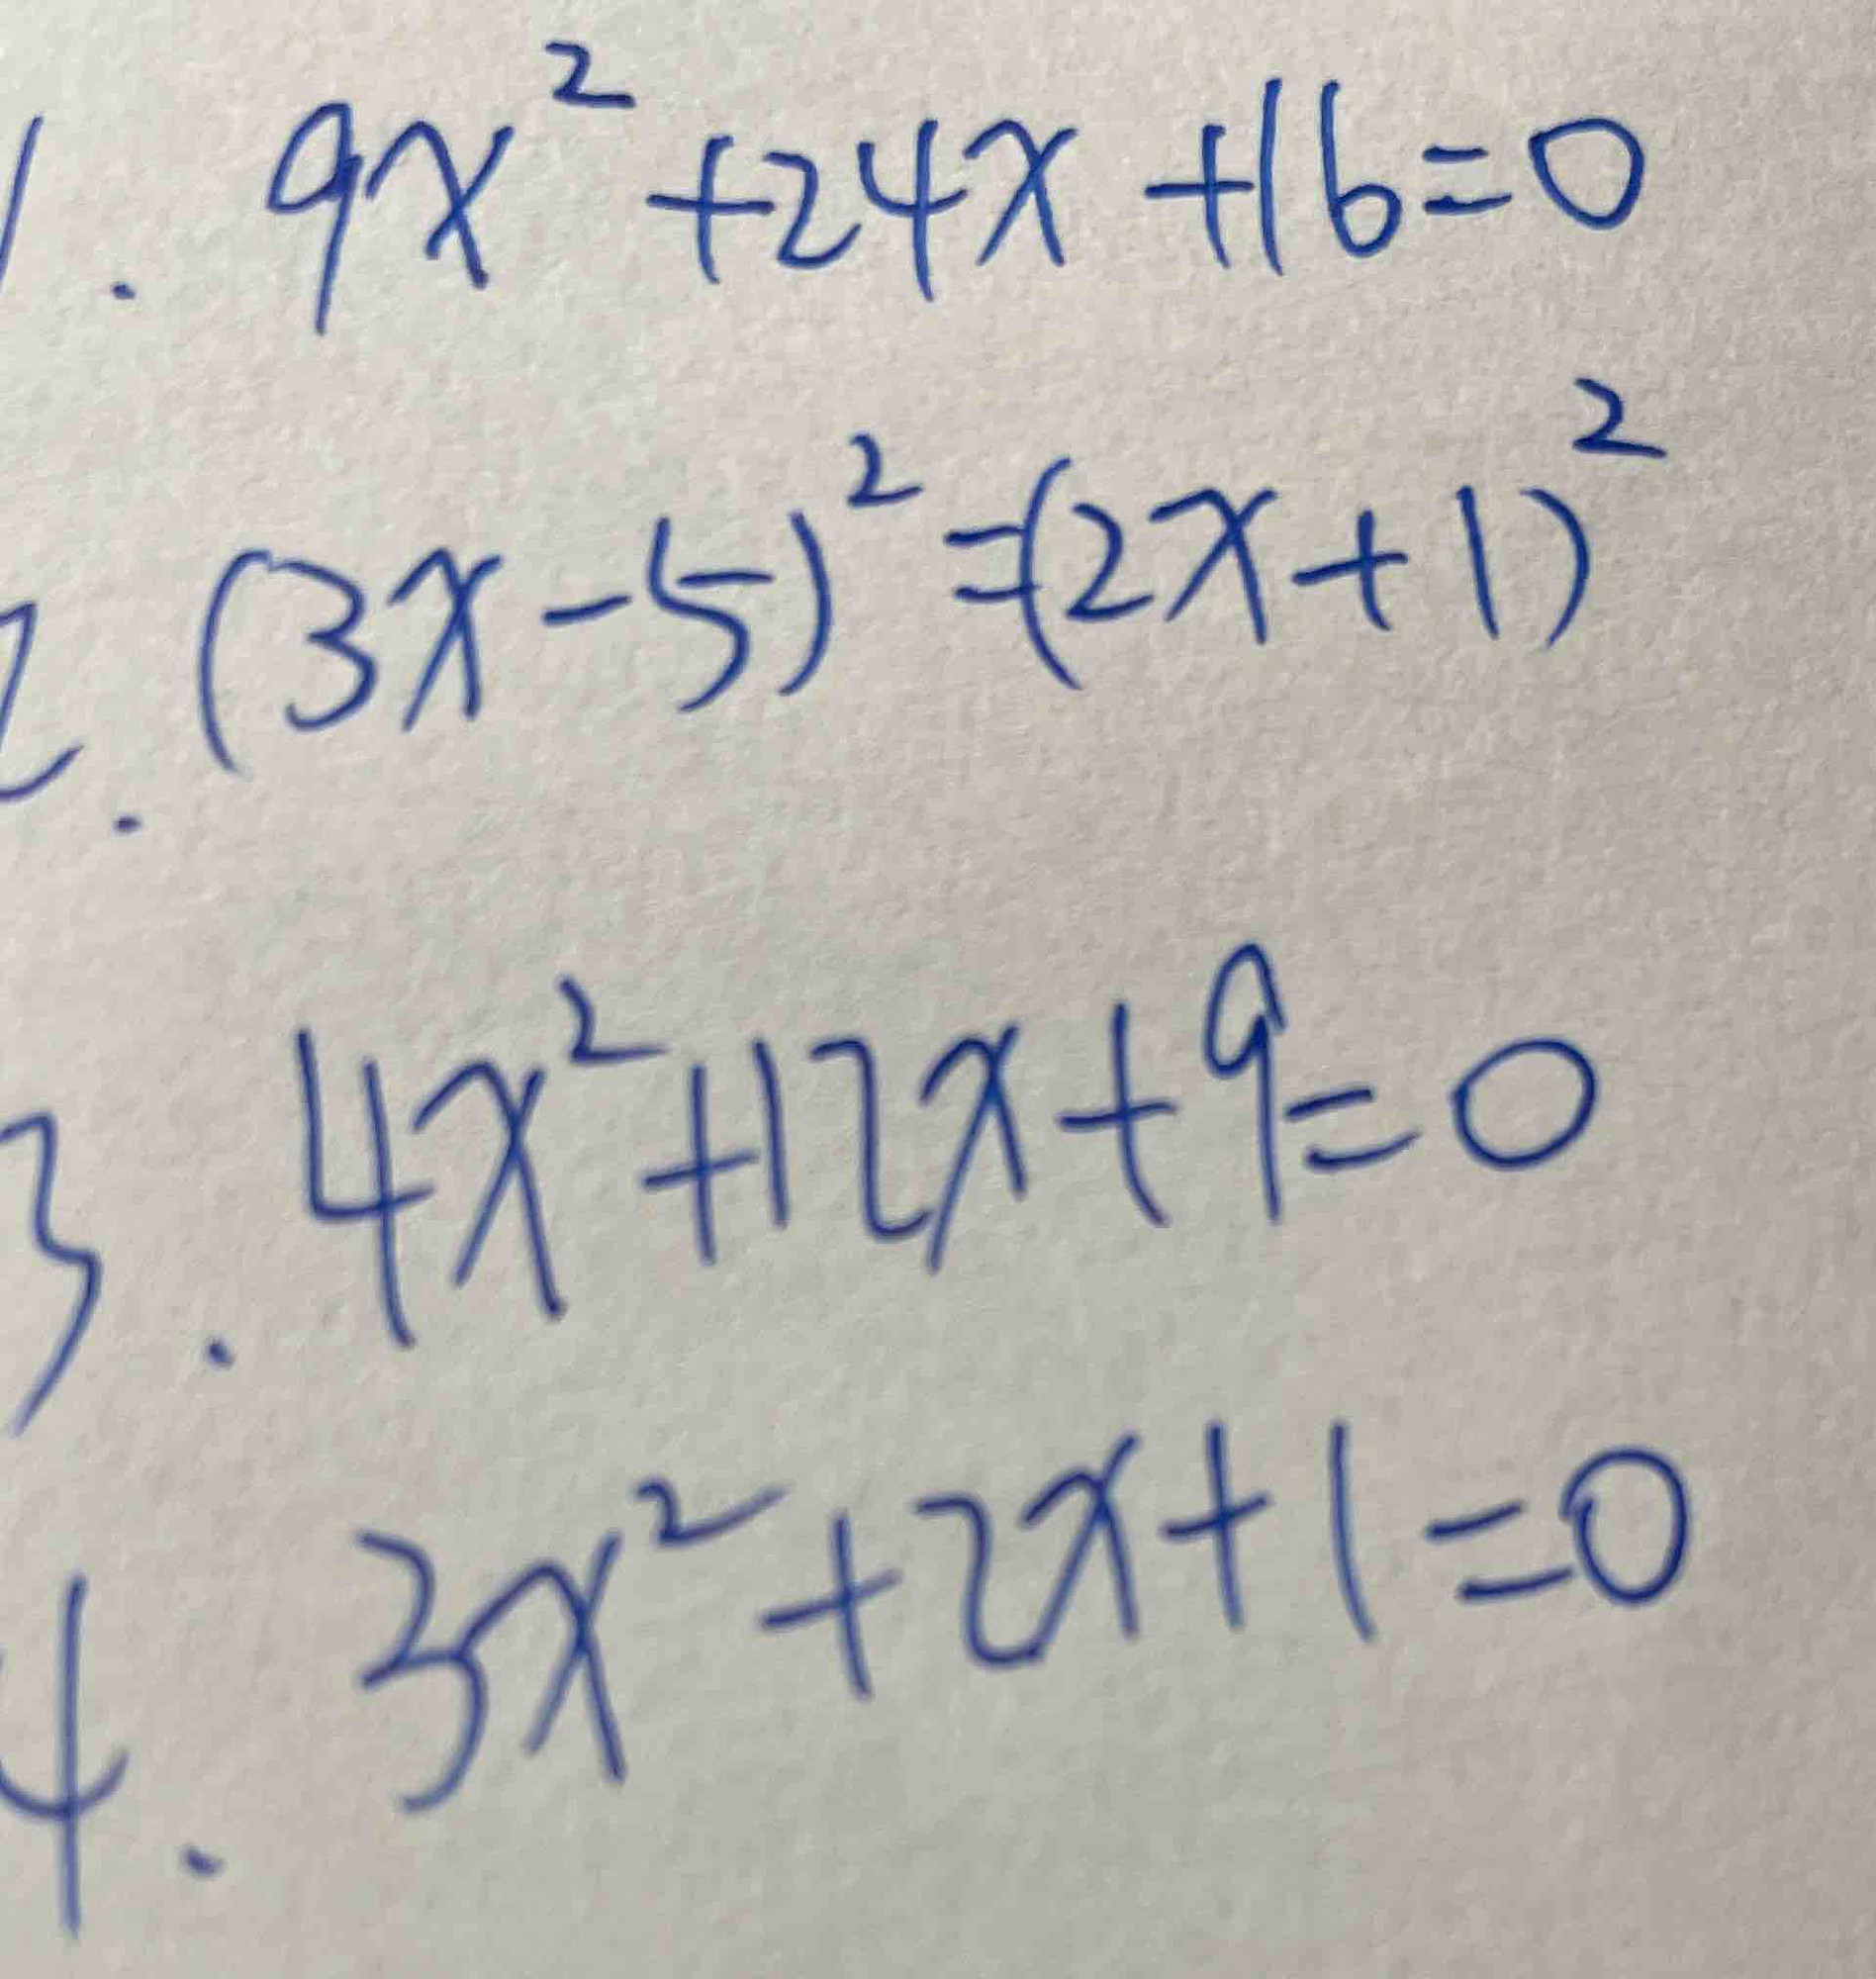 1. 9x² +24x +16=0
2. (3x-5)² =(2x+1)²
3. 4x²+12x+9=0
4. 3x²+2x+1=0